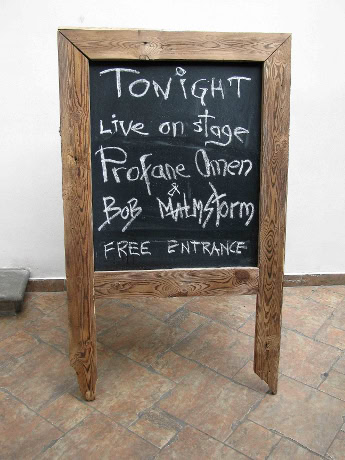 TONiGHT
Live on stage
Profane Omen
&
BOB MALMSTORM
FREE ENTRANCE